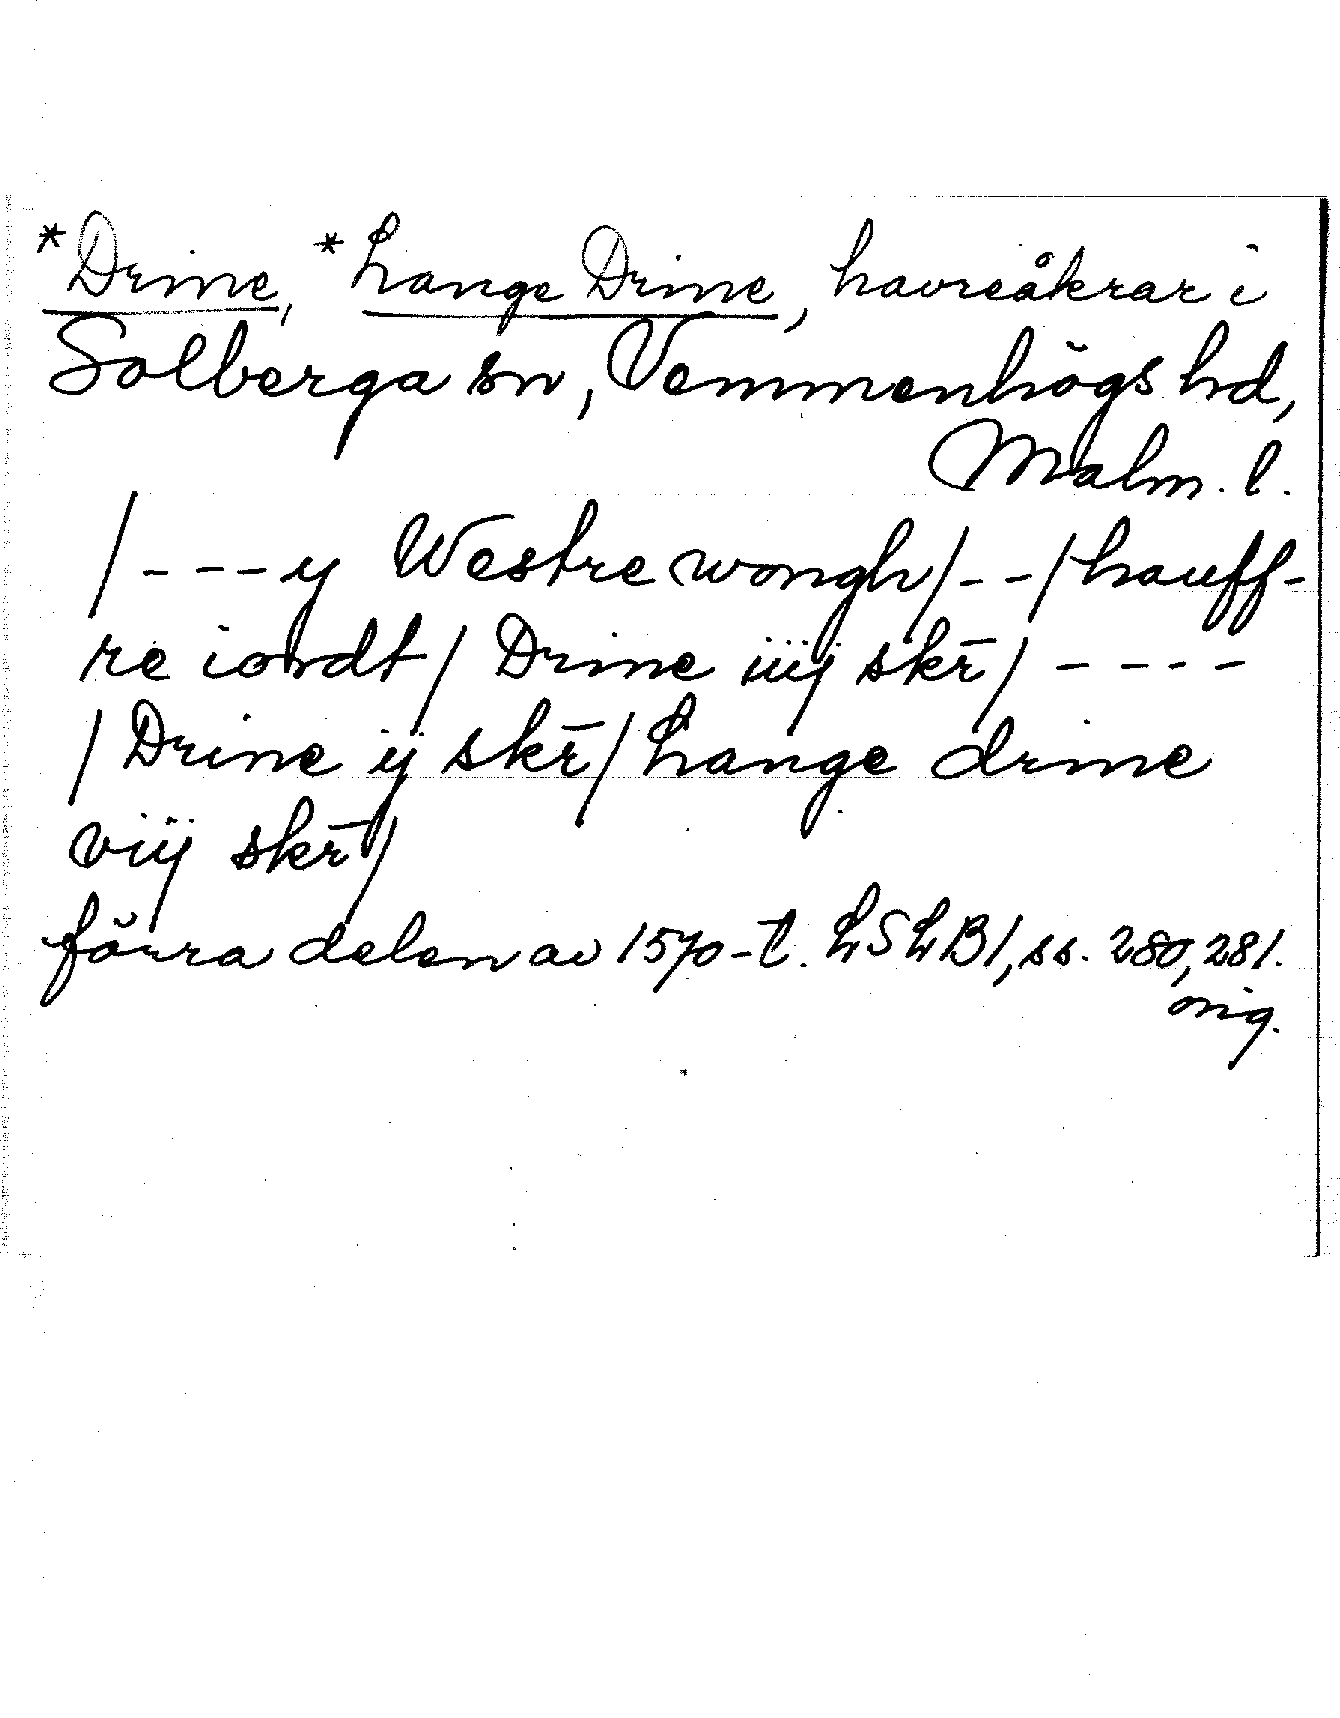 *Drine, *Lange Drine, havreåkrar i
Solberga sn, Vemmenhögs hd,
Malm. l.
/---y Westre wongh/--/hauff-
re iordt/ Drine iiij skr̄/ ----
/Drine ij skr̄/Lange drine
viij skr̄/
förra delen av 1570-t. LSLB1, ss. 280, 281.
orig.